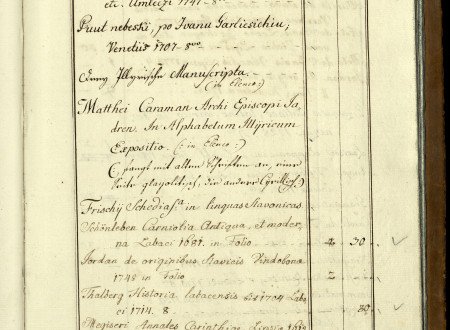 etc. 1741 - 8
Puut nebeski, po Ivanu Garliesichiu;
Venetiis 1707 - 8vo
Illyrische Manuscripta.
(: in Elenco :)
Matthei Caraman Archi Episcopi Ja-
dren. In Alphabetum Illÿricum
Expositio. (: in Elenco :)
(: fangt mit alten Schriften an, eine
Seite glagolitisch, die andere Cyrillisch :)
Frischÿ Schediasm. in linguas Slavonicas.
Schönleben Carniolia Antiqua, et moder-
na Labaci 1681. in Folio 4 30 -
Jordan de originibus slavicis Vindobonæ
1745 in Folio 2 -
Thalberg Historia labacensis 1704 Laba-
ci 1714. 8 30 -
Megiseri Annales Carinthiae